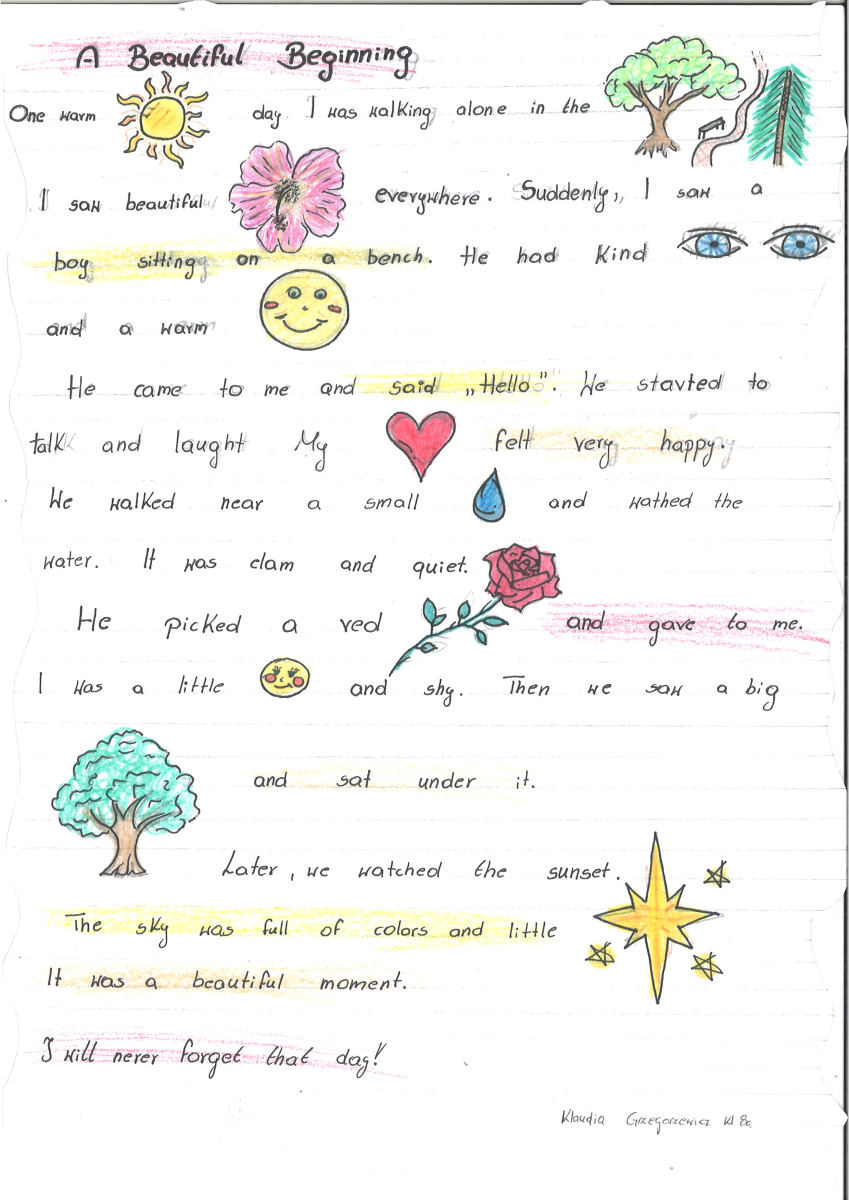 A Beautiful Beginning
One warm day I was walking alone in the
I saw beautiful everywhere. Suddenly, I saw a
boy sitting on a bench. He had kind
and a warm
He came to me and said „Hello". We started to
talk and laught My felt very happy.
We walked near a small and wathed the
water. It was clam and quiet.
He picked a red and gave to me.
I was a little and shy. Then we saw a big
and sat under it.
Later, we watched the sunset.
The sky was full of colors and little
It was a beautiful moment.
I will never forget that day!
Klaudia Grzegorzewicz kl 8a